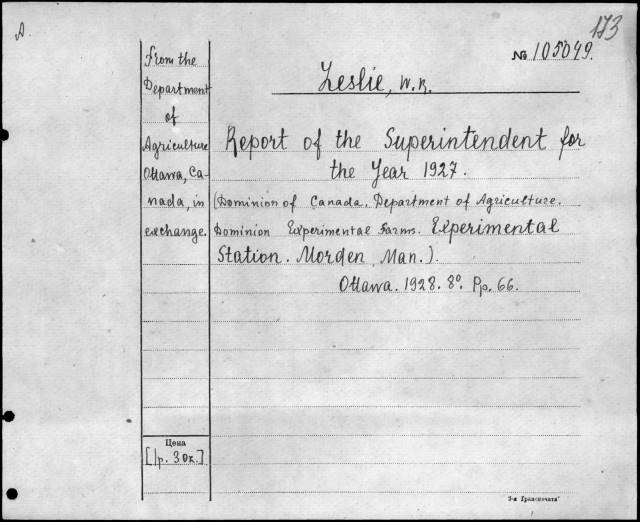 A.
173
№ 105049.
Leslie, W.R.
From the
Department
of
Agriculture
Ottawa, Ca-
nada, in
exchange.
Report of the Superintendent for
the Year 1927.
(Dominion of Canada. Department of Agriculture.
Dominion Experimental Farms. Experimental
Station. Morden, Man.).
Ottawa. 1928. 8º. Pp. 66.
Цена
[1р. 30к.]
3-я Гранпечата"